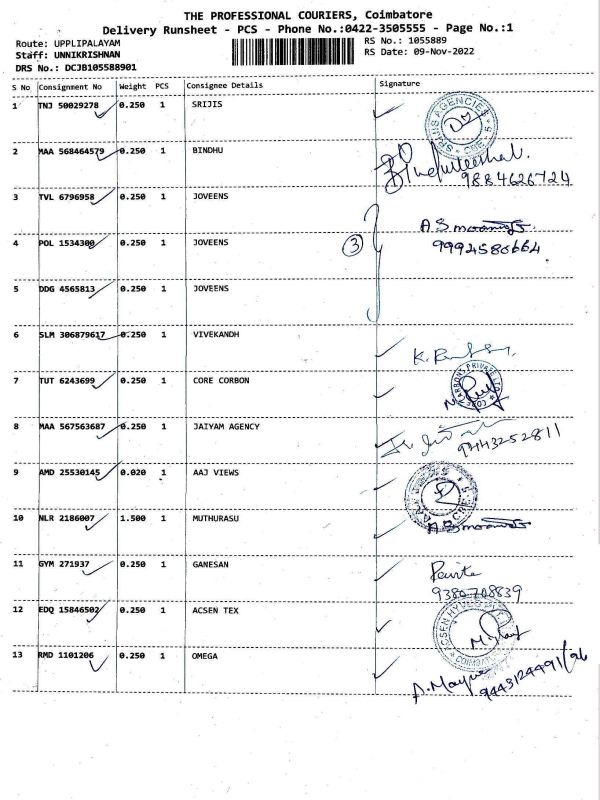 THE PROFESSIONAL COURIERS, Coimbatore
Delivery Runsheet - PCS - Phone No.:0422-3505555 - Page No.:1
Route: UPPLIPALAYAM RS No.: 1055889
Staff: UNNIKRISHNAN RS Date: 09-Nov-2022
DRS No.: DCJB105588901
S No Consignment No Weight PCS Consignee Details Signature
1 TNJ 50029278 0.250 1 SRIJIS
AGENCIES CBE - 5
2 MAA 568464579 0.250 1 BINDHU
9884626724
3 TVL 6796958 0.250 1 JOVEENS
4 POL 1534300 0.250 1 JOVEENS 3 9994580664
5 DDG 4565813 0.250 1 JOVEENS
6 SLM 306879617 0.250 1 VIVEKANDH
7 TUT 6243699 0.250 1 CORE CORBON
8 MAA 567563687 0.250 1 JAIYAM AGENCY
9443252811
9 AMD 25530145 0.020 1 AAJ VIEWS
10 NLR 2186007 1.500 1 MUTHURASU
11 GYM 271937 0.250 1 GANESAN
9380708839
12 EDQ 15846502 0.250 1 ACSEN TEX
13 RMD 1101206 0.250 1 OMEGA